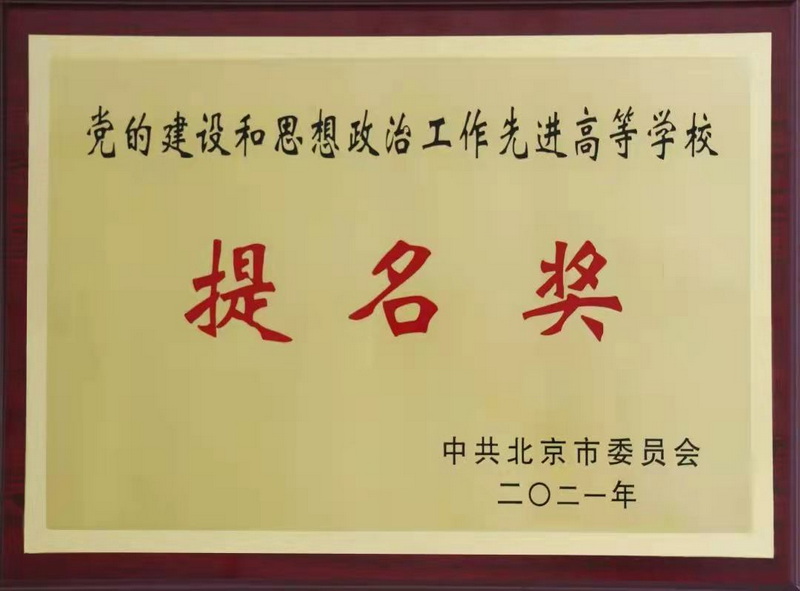 党的建设和思想政治工作先进高等学校
提名奖
中共北京市委员会
二〇二一年